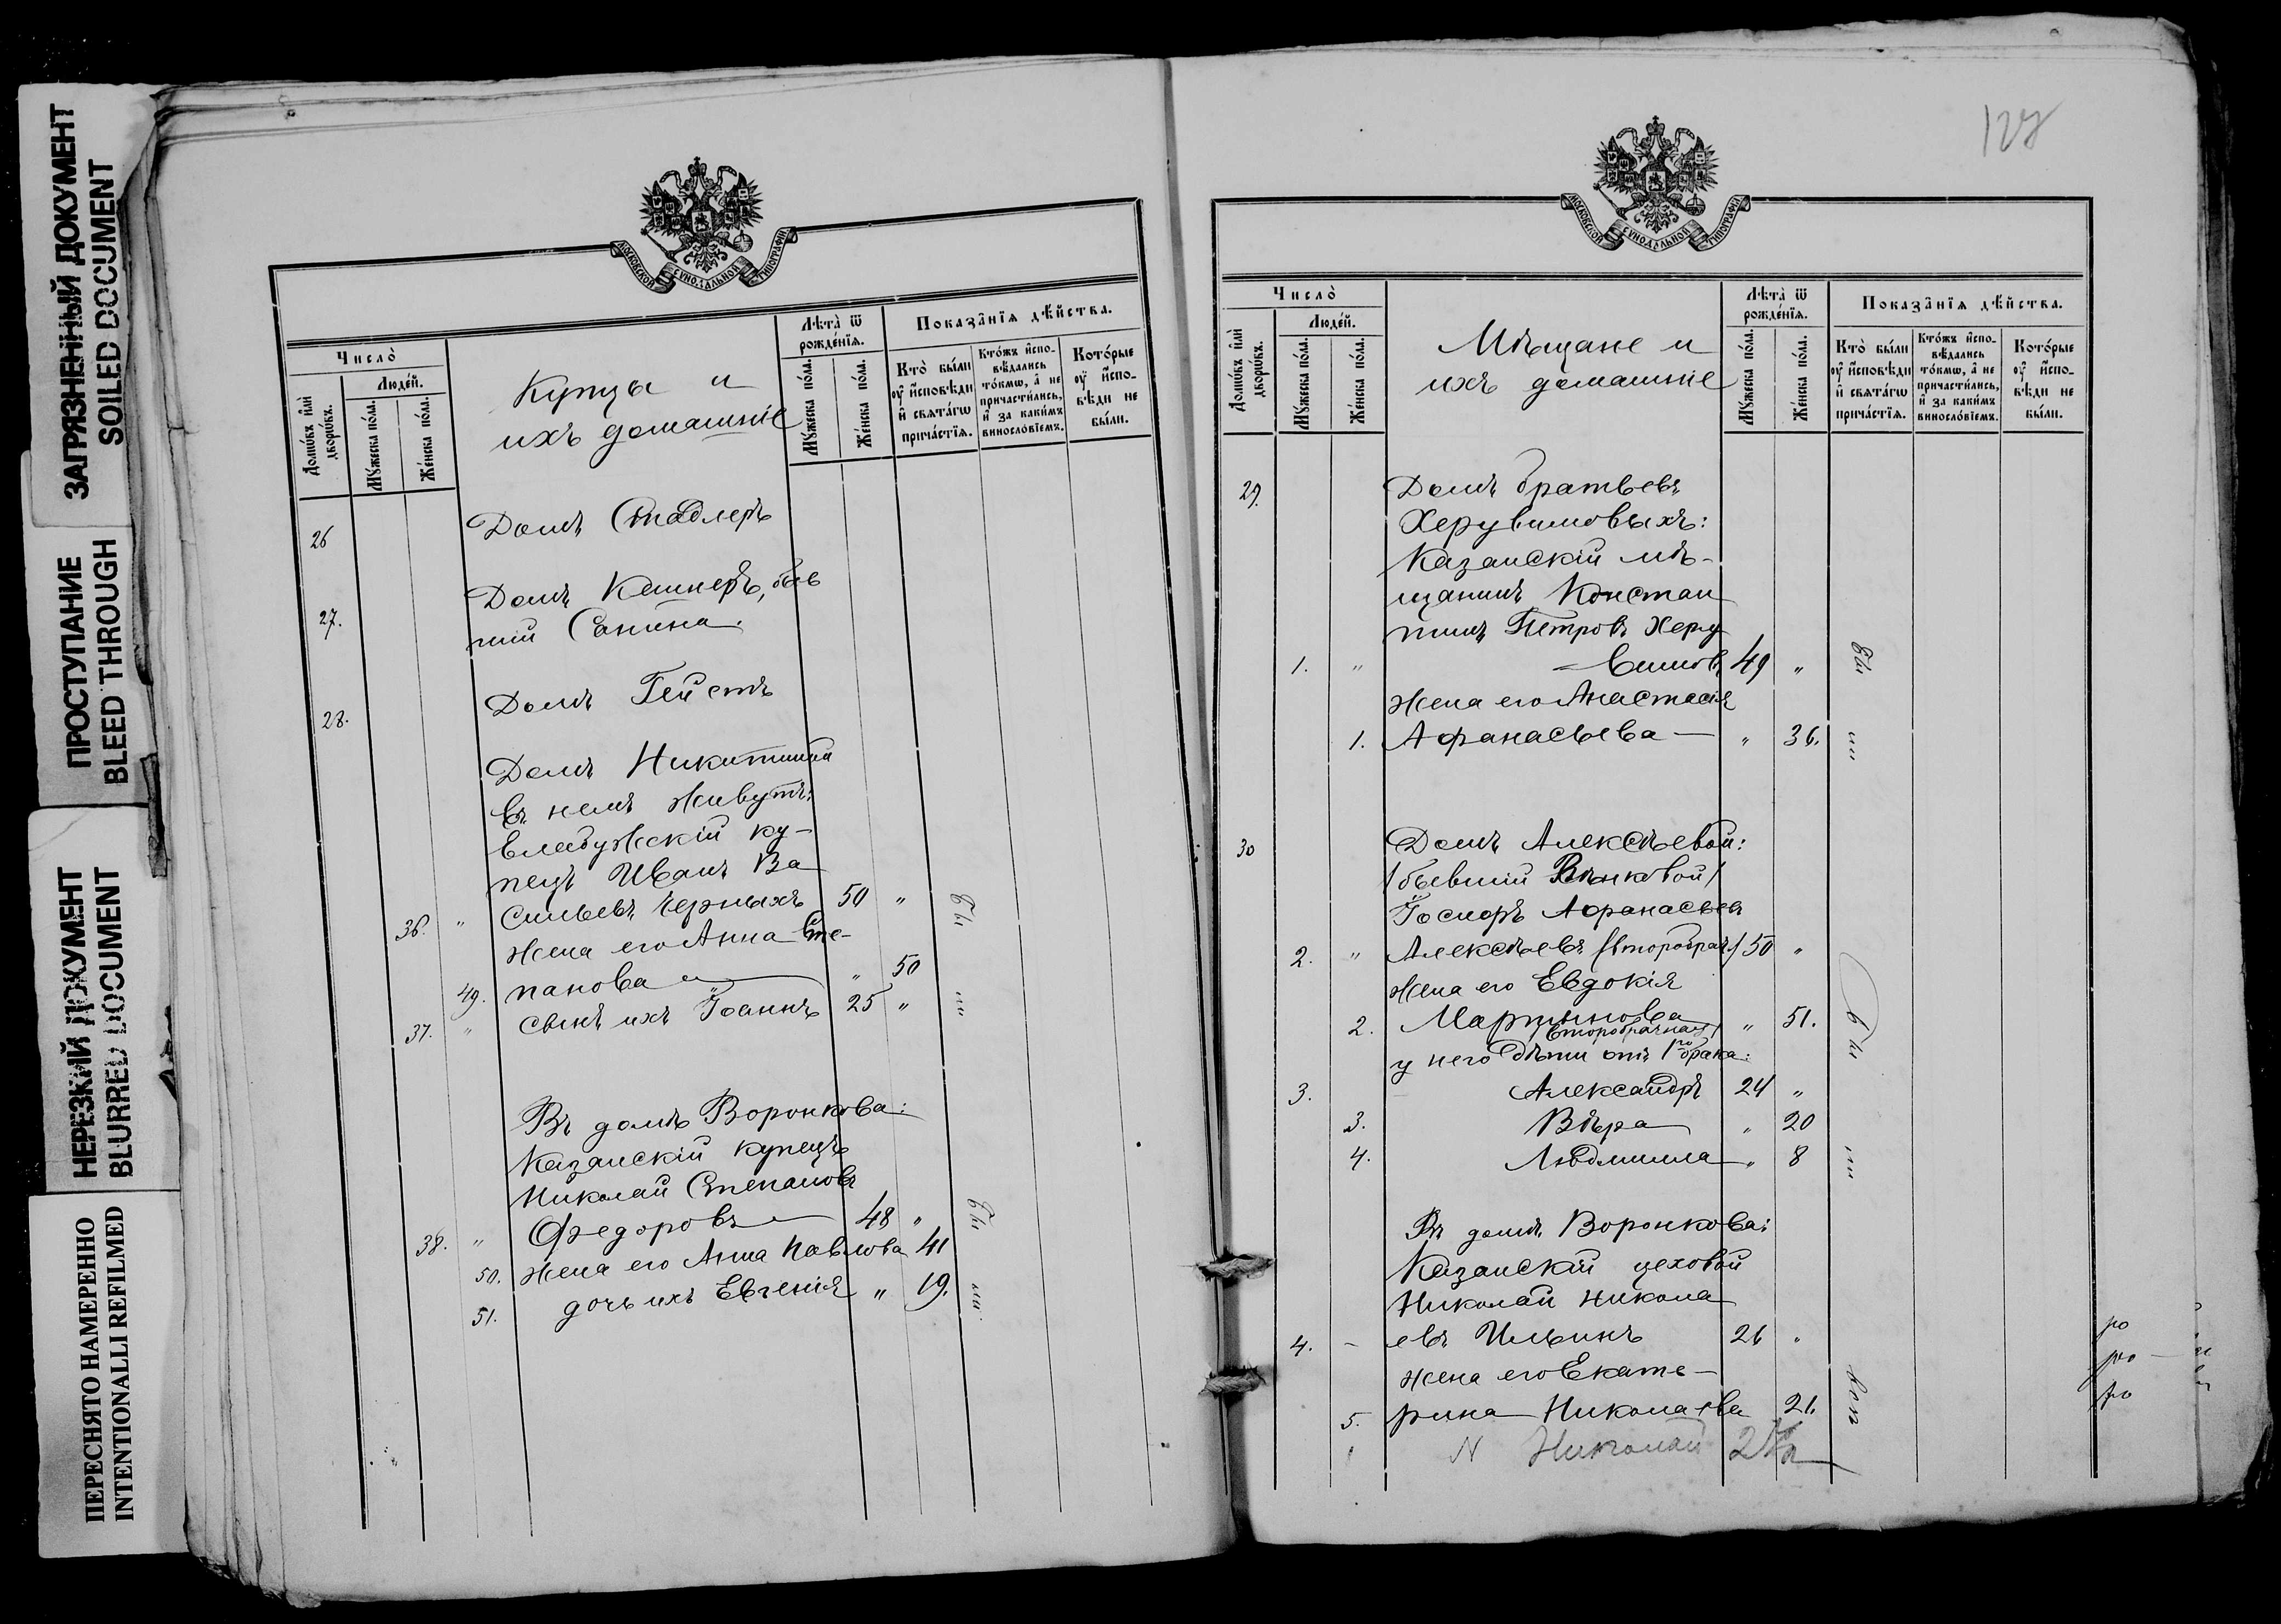 ЗАГРЯЗНЕННЫЙ ДОКУМЕНТ
SOILED DOCUMENT
ПРОСТУПАНИЕ
BLEED THROUGH
НЕРЕЗКИЙ ДОКУМЕНТ
BLURRED DOCUMENT
ПЕРЕСНЯТО НАМЕРЕННО
INTENTIONALLI REFILMED
МОСКОВСКОЙ СѴНОДАЛЬНОЙ ТИПОГРАФІИ
Число̀
Людей.
Домѡ́въ и҆лѝ дворѡ́въ.
Мꙋ́жеска по́ла.
Же́нска по́ла.
Купцы и
ихъ домашніе
Лѣта̀ ѿ рожде́нїѧ.
Мꙋ́жеска по́ла.
Же́нска по́ла.
Показа̑нїѧ дѣ́йства.
Кто̀ бы́ли ᲂу҆ и҆сповѣ́ди и҆ свѧта́гѡ прича́стїѧ.
Кто́жъ и҆спо- вѣ́дались то́кмѡ, а҆ не причасти́лись, и҆ за каки́мъ винослові́емъ.
Кото́рые ᲂу҆ и҆спо- вѣ́ди не бы́ли.
26 Домъ Стадлеръ
27. Домъ Кемнеръ, быв
шій Санина.
28. Домъ Гейстъ
Домъ Никитина
въ немъ живутъ:
Елабужскій ку-
пецъ Иванъ Ва
36. " сильевъ Черныхъ 50 " бы
жена его Анна Сте-
49. панова " 50
37. " сынъ ихъ Іоаннъ 25 " ли
Въ домѣ Воронкова:
Казанскій купецъ
Николай Степановъ
38. " Ѳедоровъ 48 " бы
50. жена его Анна Павлова 41
51. дочь ихъ Евгенія " 19. ли
127
МОСКОВСКОЙ СѴНОДАЛЬНОЙ ТИПОГРАФІИ
Число̀
Людей.
Домѡ́въ и҆лѝ дворѡ́въ.
Мꙋ́жеска по́ла.
Же́нска по́ла.
Мѣщане и
ихъ домашніе
Лѣта̀ ѿ рожде́нїѧ.
Мꙋ́жеска по́ла.
Же́нска по́ла.
Показа̑нїѧ дѣ́йства.
Кто̀ бы́ли ᲂу҆ и҆сповѣ́ди и҆ свѧта́гѡ прича́стїѧ.
Кто́жъ и҆спо- вѣ́дались то́кмѡ, а҆ не причасти́лись, и҆ за каки́мъ винослові́емъ.
Кото́рые ᲂу҆ и҆спо- вѣ́ди не бы́ли.
29. Домъ братьевъ
Херувимовыхъ:
Казанскій мѣ-
щанинъ Констан
тинъ Петровъ Херу
1. " =вимовъ 49 " бы
жена его Анастасія
1. Афанасьева — " 36. ли
30 Домъ Алексѣевой:
/бывшій Вѣнковой/
Афанасьевъ
2. " Алексѣевъ /второбрач/ 50 "
жена его Евдокія
2. Мартынова " 51. бы
/второбрачная/
у него дѣти отъ 1го брака:
3. Александръ 24 "
3. Вѣра " 20
4. Людмила " 8 ли
Въ домѣ Воронкова:
Казанскій цеховой
Николай Никола
4. - евъ Ильинъ 26 "
жена его Екате-
5. рина Николаева 21.
N Николай
ро
ро —
ро